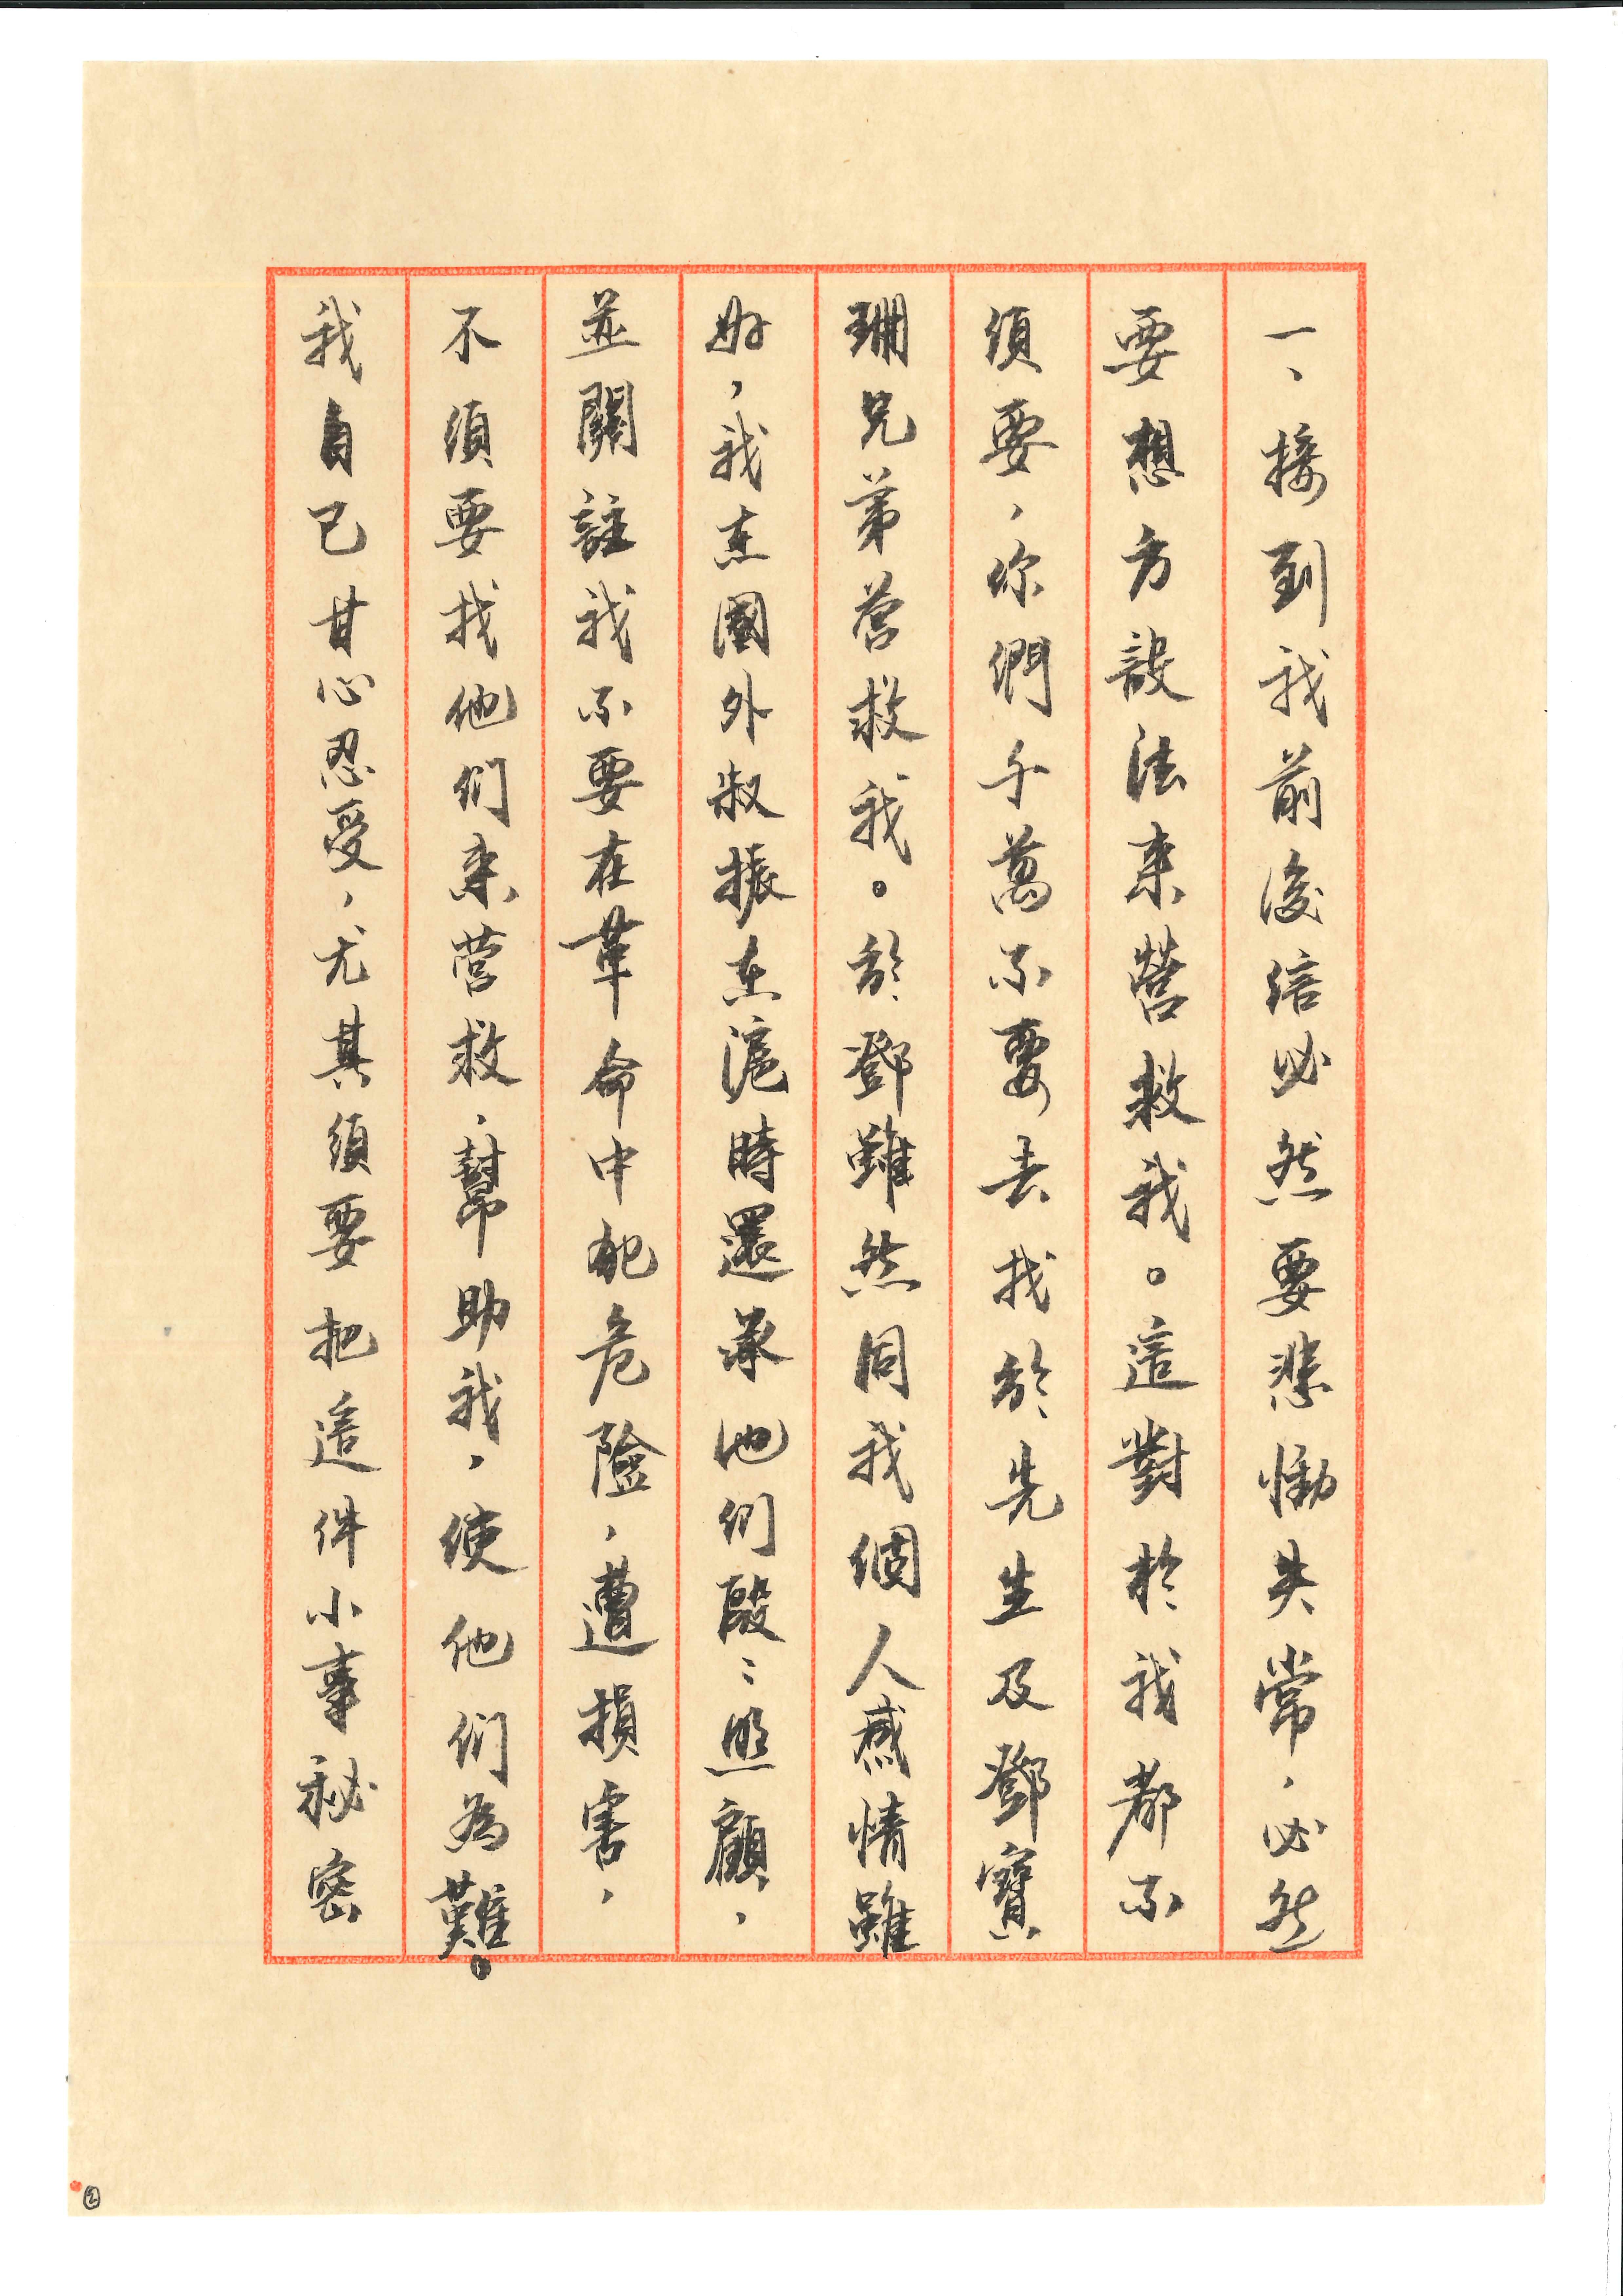 一、接到我前後信必然要悲慟失常，必然
要想方設法来營救我。這對於我都不
須要，你們千萬不要去找於先生及鄧寶
珊兄弟营救我。於鄧雖然同我個人感情雖
好，我在國外叔振在滬時還承他们殷：照顧，
並關註我不要在革命中犯危險，遭損害，
不須要找他们来营救，幫助我，使他们為難。
我自己甘心忍受，尤其須要把這件小事秘密
②